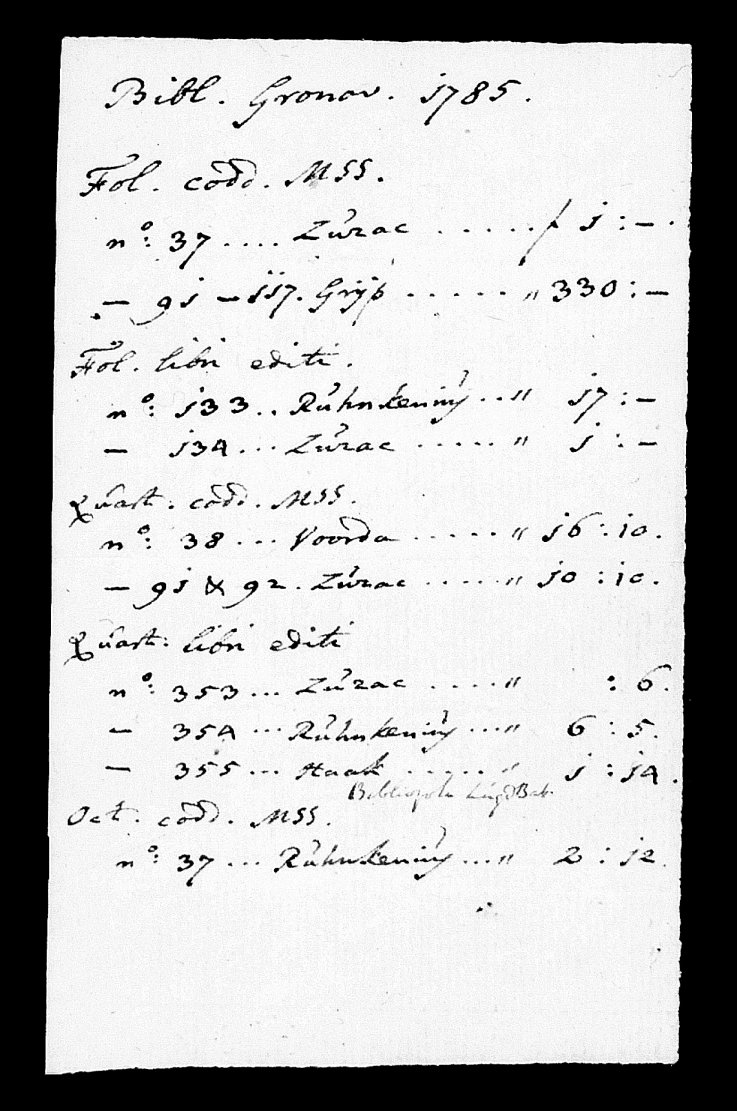 Bibl. Gronov. 1785.
Fol. codd. MSS.
no: 37 .... Luzac ...... f 1 : – .
– 91 – 117. Gryp ...... „ 330 : –
Fol. libri editi.
no: 133 .. Ruhnkenius .. „ 17 : –
– 134 ... Luzac ..... „ 1 : –
Quart. codd. MSS.
no: 38 ... Voorda ..... „ 16 : 10.
– 91 & 92. Luzac ..... „ 10 : 10.
Quart: libri editi
no: 353 ... Luzac .... „ : 6.
– 354 ... Ruhnkenius ... „ 6 : 5.
– 355 ... Haak ..... „ 1 : 14.
Bibliopola Lugd Bat.
Oct. codd. MSS.
no: 37 ... Ruhnkenius ... „ 2 : 12.